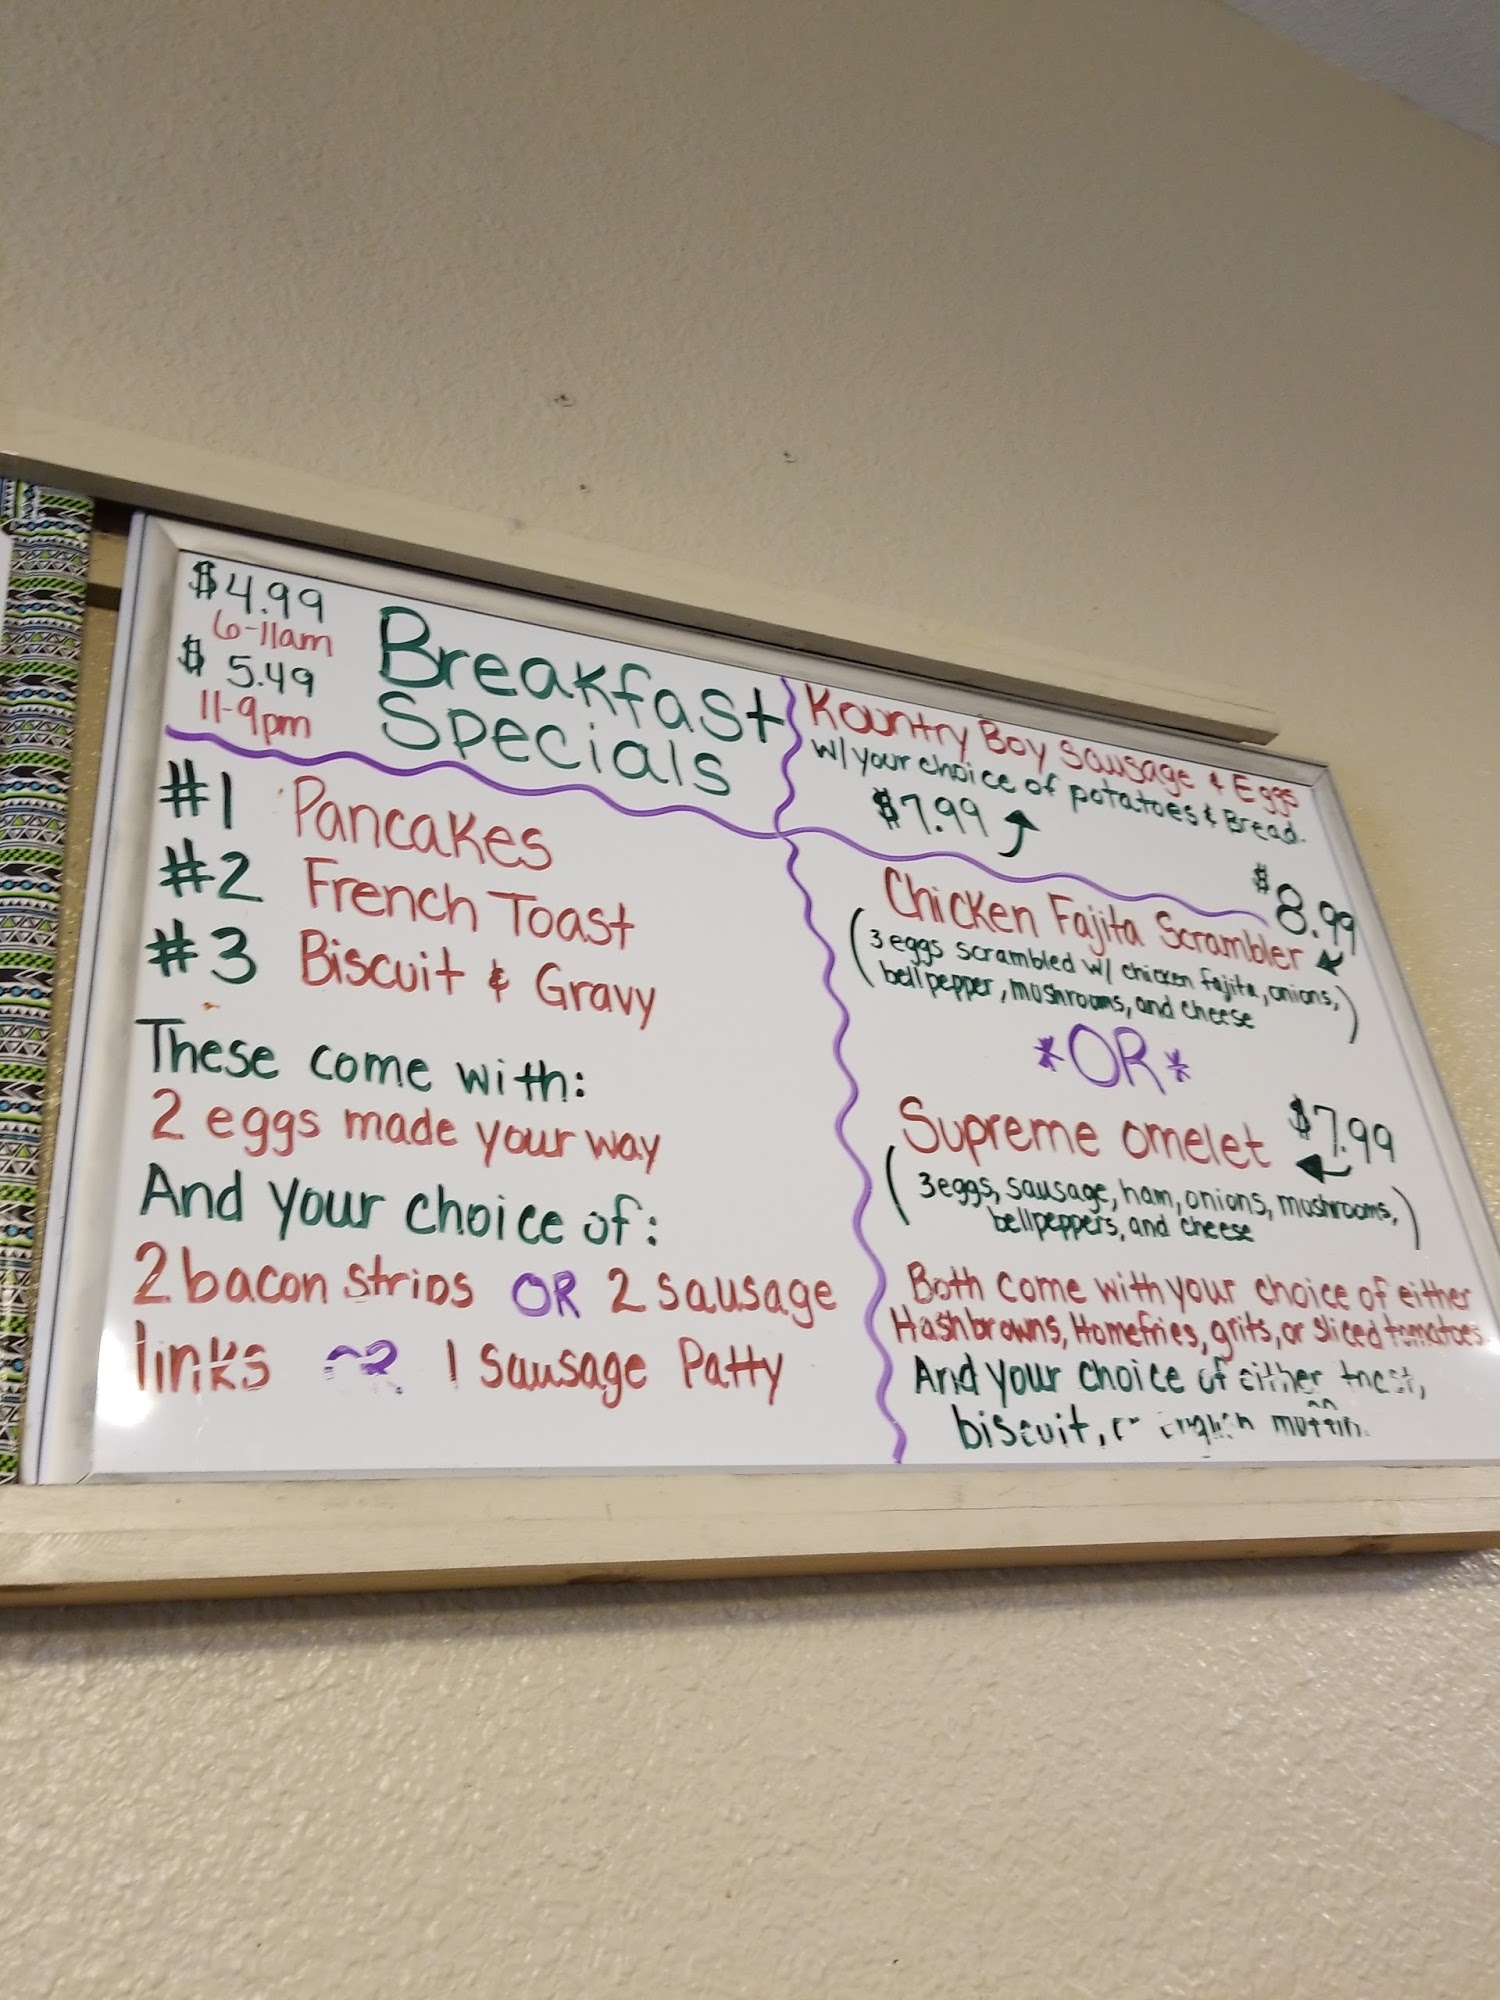 $4.99
6-11am
$5.49
11-9pm
Breakfast
Specials
#1 Pancakes
#2 French Toast
#3 Biscuit & Gravy
These come with:
2 eggs made your way
And your choice of:
2 bacon strips OR 2 sausage
links 1 Sausage Patty
Kountry Boy Sausage & Eggs
w/ your choice of potatoes & Bread.
$7.99
$8.99
Chicken Fajita Scrambler
(3 eggs scrambled w/ chicken fajita, onions,
bellpepper, mushrooms, and cheese)
*OR*
Supreme omelet $7.99
(3 eggs, sausage, ham, onions, mushrooms,
bellpeppers, and cheese)
Both come with your choice of either
Hashbrowns, Homefries, grits, or sliced tomatoes
And your choice of either toast,
biscuit, or english muffin.